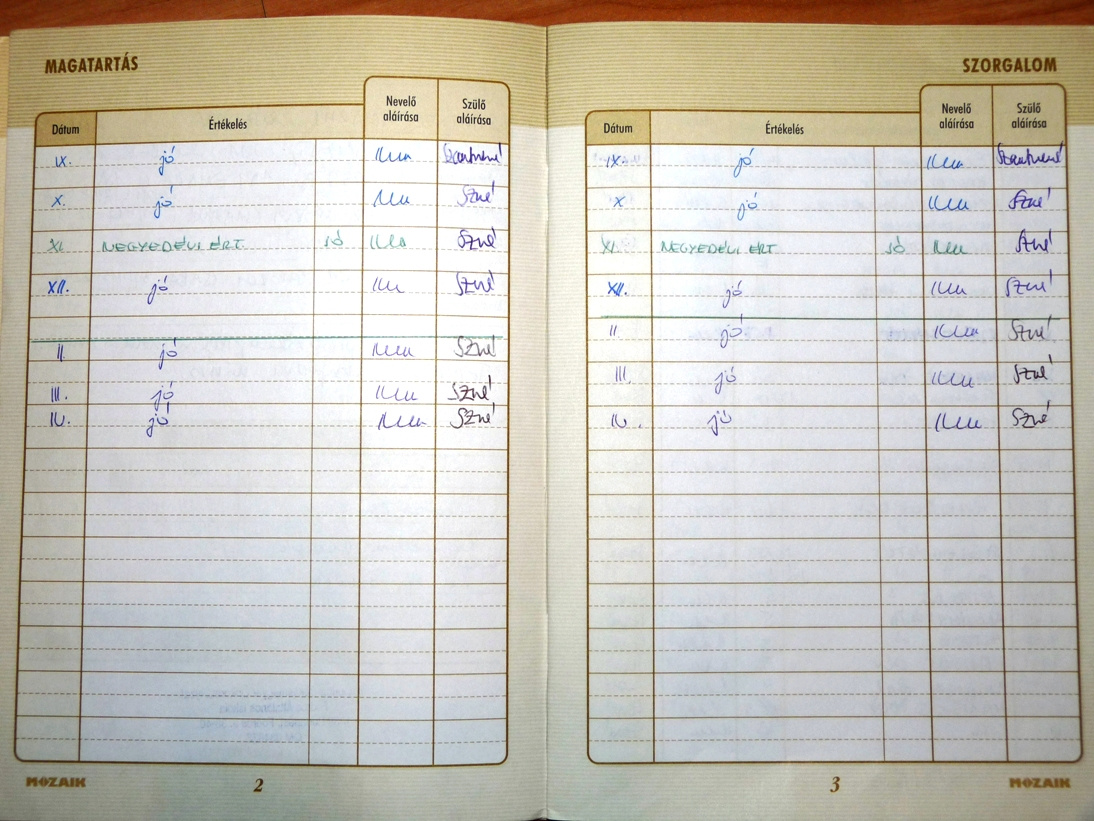 MAGATARTÁS
Dátum Értékelés Nevelő aláírása Szülő aláírása
IX. jó
X. jó Szné
XI. NEGYEDÉVI ÉRT. JÓ Szné
XII. jó Szné
II. jó Szné
III. jó Szné
IV. jó Szné
MOZAIK 2
SZORGALOM
Dátum Értékelés Nevelő aláírása Szülő aláírása
IX. jó
X jó Szné
XI. NEGYEDÉVI ÉRT JÓ Szné
XII. jó Szné
II. jó Szné
III. jó Szné
IV. jó Szné
3 MOZAIK